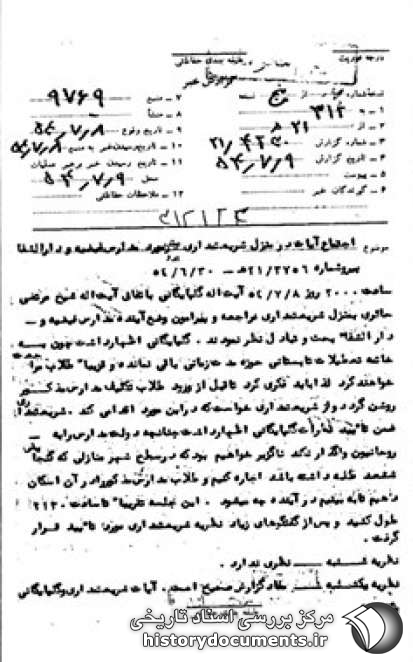 درجه فوریت طبقه بندی حفاظتی
گزارش خبر
نسخه شماره از پنج نسخه ۷ - منبع ۹۷۶۹
۱ - به ۳۱۲ ۸ - منشأ
۲ - از ۲۱ ه ۹ - تاریخ وقوع ۵۴/۷/۸
۳ - شماره گزارش ۲۱/۴۲۳۰ ۱۰ - تاریخ رسیدن خبر به منبع ۵۴/۷/۸
۴ - تاریخ گزارش ۵۴/۷/۹ ۱۱ - تاریخ رسیدن خبر برهبر عملیات
۵ - پیوست محل ۵۴/۷/۹
۶ - گیرندگان خبر ۱۲ - ملاحظات حفاظتی
۳۱۲۱۲۴
موضوع اجتماع آیات در منزل شریعتمداری در مورد مدارس فیضیه و دارالشفا
پیرو شماره ۲۱/۳۷۵۶ ه - ۵۴/۶/۳۰
ساعت ۲۰۰۰ روز ۵۴/۷/۸ آیت اله گلپایگانی باتفاق آیت اله شیخ مرتضی
حائری بمنزل شریعتمداری مراجعه و پیرامون وضع آینده مدارس فیضیه و
دارالشفا بحث و تبادل نظر نمودند . گلپایگانی اظهار داشت چون به
خاتمه تعطیلات تابستانی حوزه مدت زمانی باقی نمانده و قریباً طلاب مراجعت
خواهند کرد لذا باید فکری کرد تا قبل از ورود طلاب تکلیف مدارس مذکور
روشن گردد و از شریعتمداری خواست که در این مورد اقدامی کند . شریعتمداری
ضمن تأیید نظرات گلپایگانی اظهار داشت چنانچه دولت مدارس را به
روحانیون واگذار نکند ناگزیر خواهیم بود که در سطح شهر منازلی که گنجایش
طلبه داشته باشد اجاره کنیم و طلاب مدارس مذکور را در آن اسکان
دهیم تا ببینیم در آینده چه میشود . این جلسه تقریباً تا ساعت ۲۱۳۰
طول کشید و پس از گفتگوهای زیاد نظریه شریعتمداری مورد تأیید قرار
گرفت .
نظریه شنبه نظری ندارد .
نظریه یکشنبه مفاد گزارش صحیح است . آیات شریعتمداری و گلپایگانی
مرکز بررسی اسناد تاریخی
historydocuments.ir